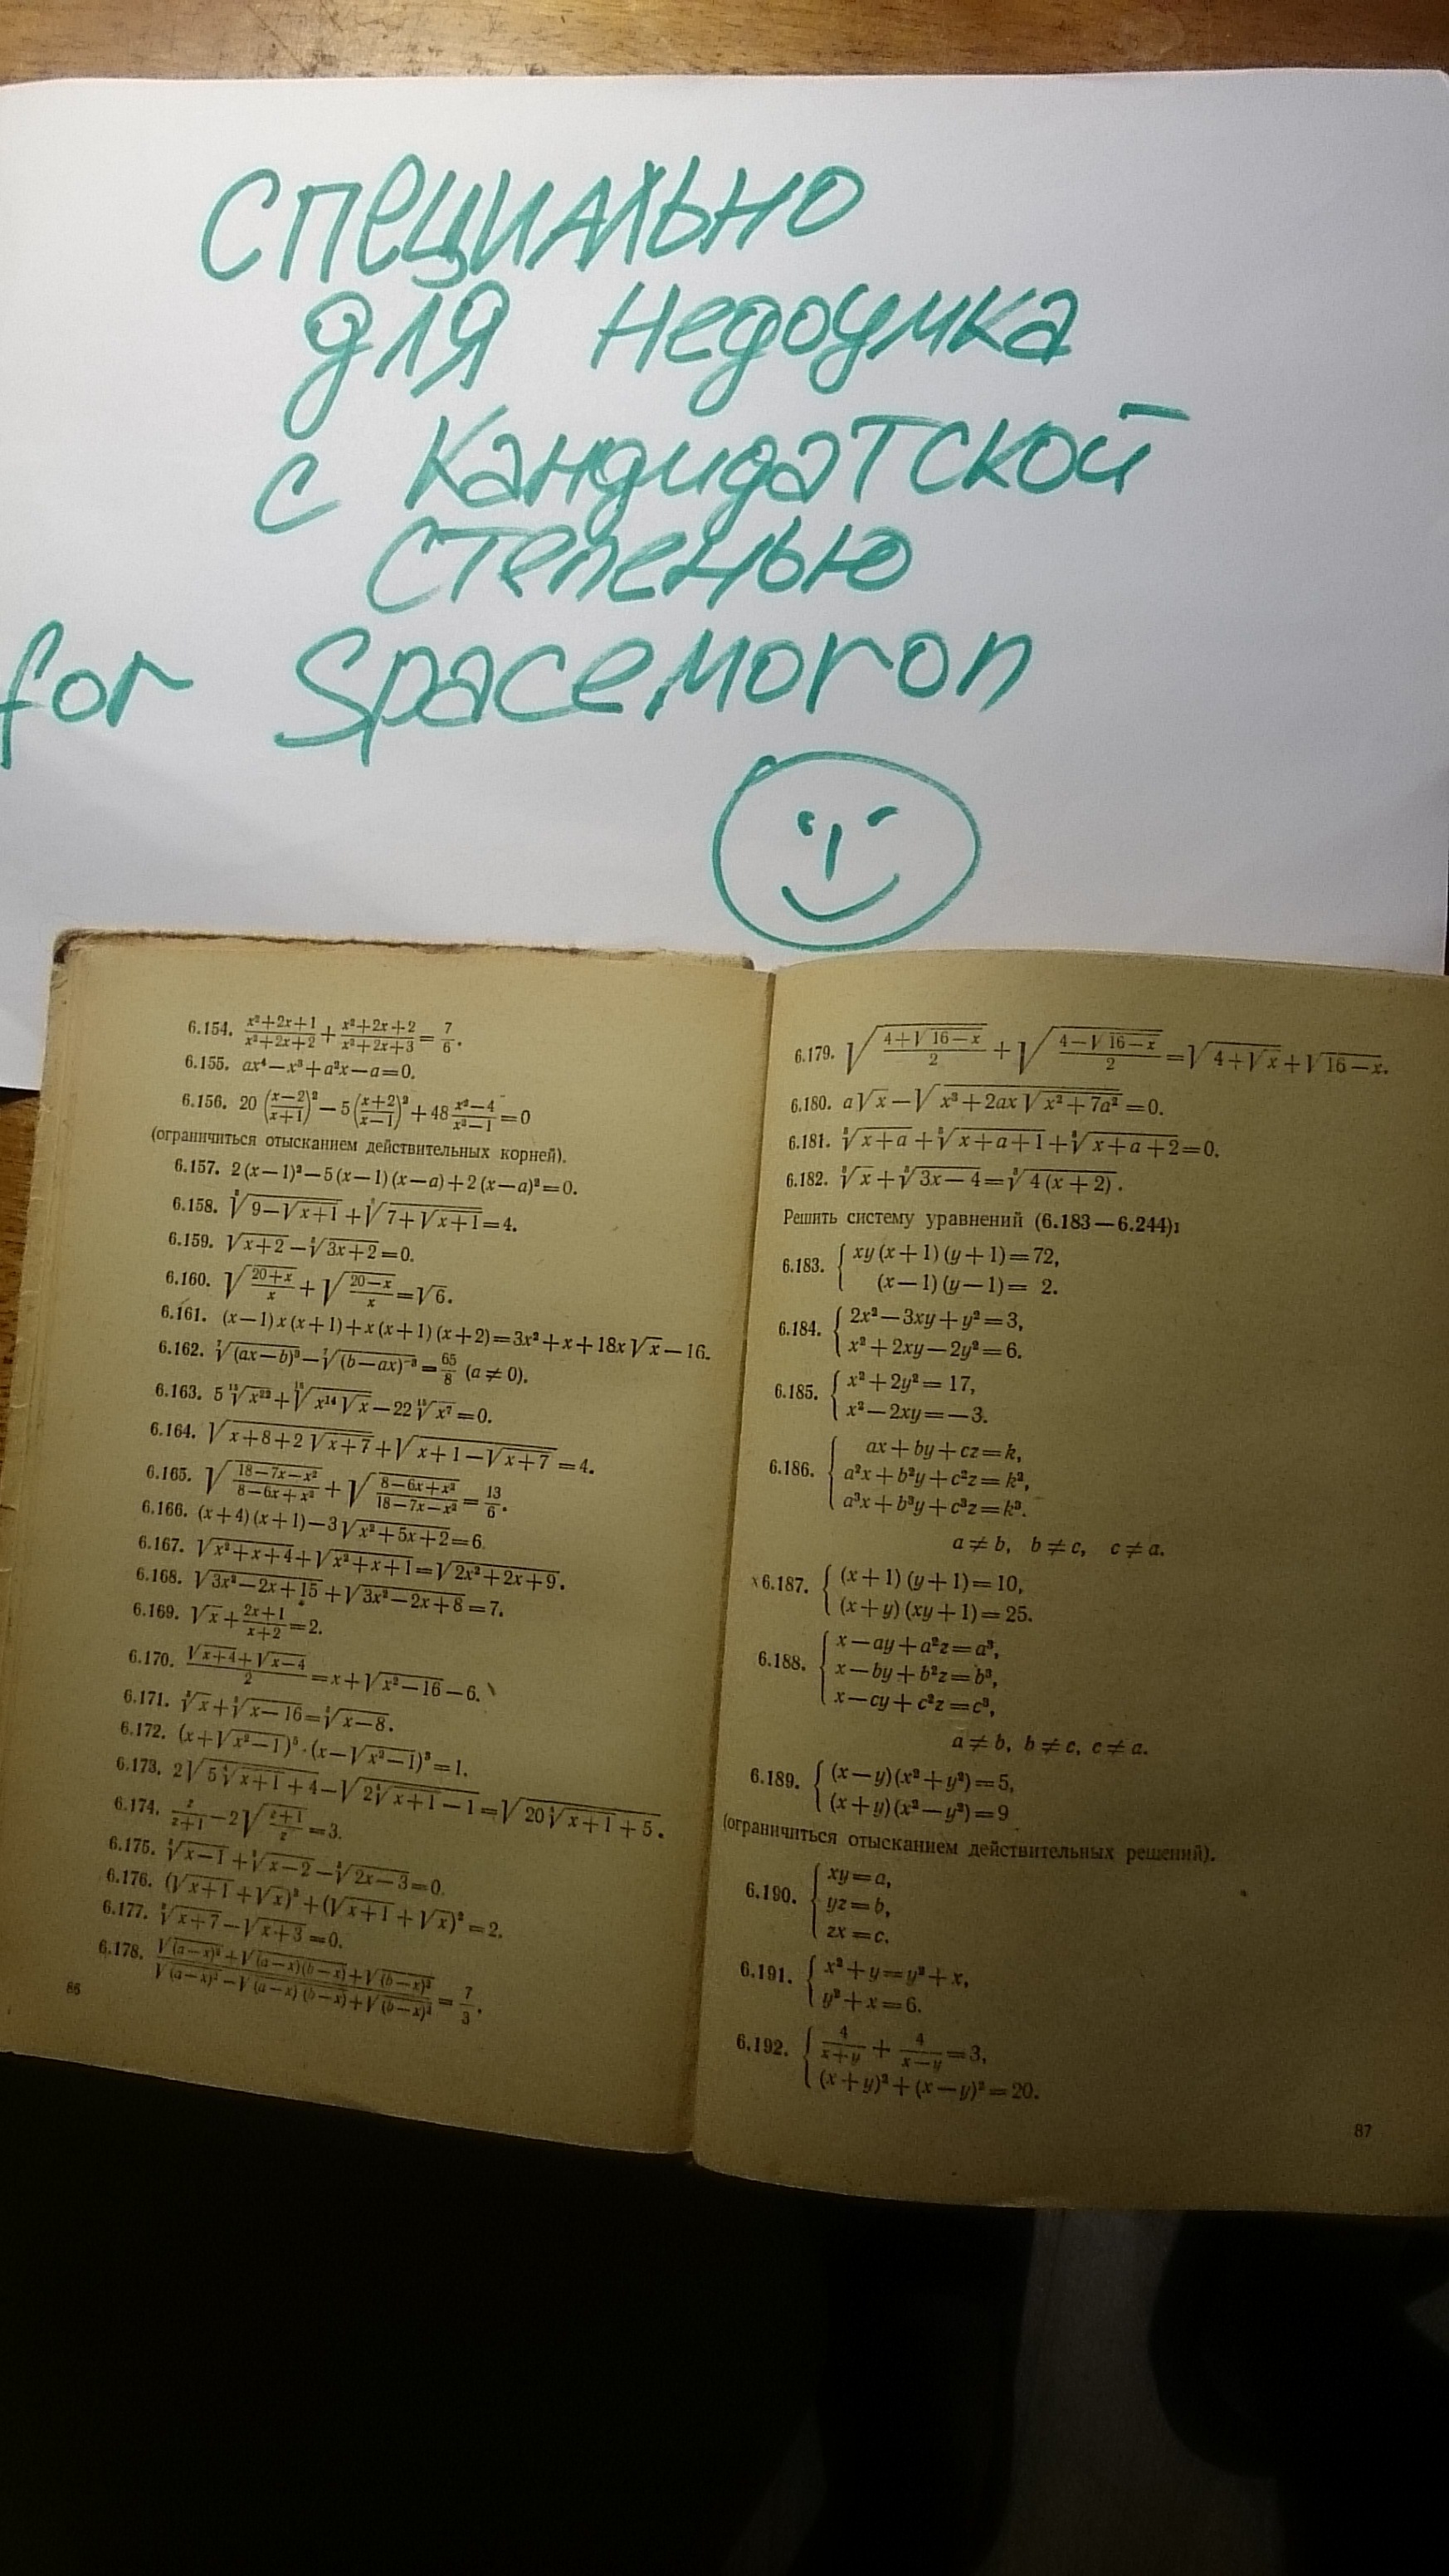 специально
для недоумка
с кандидатской
степенью
for Spacemoron
6.154. (x²+2x+1)/(x²+2x+2) + (x²+2x+2)/(x²+2x+3) = 7/6.
6.155. ax⁴−x³+a²x−a=0.
6.156. 20((x−2)/(x+1))²−5((x+2)/(x−1))²+48(x²−4)/(x²−1)=0
(ограничиться отысканием действительных корней).
6.157. 2(x−1)²−5(x−1)(x−a)+2(x−a)²=0.
6.158. ∛(9−√(x+1))+∛(7+√(x+1))=4.
6.159. √(x+2)−∛(3x+2)=0.
6.160. √((20+x)/x)+√((20−x)/x)=√6.
6.161. (x−1)x(x+1)+x(x+1)(x+2)=3x²+x+18x√x−16.
6.162. √((ax−b)³)−√((b−ax)⁻³)=65/8 (a≠0).
6.163.
6.164. √(x+8+2√(x+7))+√(x+1−√(x+7))=4.
6.165. √((18−7x−x²)/(8−6x+x²))+√((8−6x+x²)/(18−7x−x²))=13/6.
6.166. (x+4)(x+1)−3√(x²+5x+2)=6.
6.167. √(x²+x+4)+√(x²+x+1)=√(2x²+2x+9).
6.168. √(3x²−2x+15)+√(3x²−2x+8)=7.
6.169. √x+(2x+1)/(x+2)=2.
6.170. (√(x+4)+√(x−4))/2=x+√(x²−16)−6.
6.171. ∛x+∛(x−16)=∛(x−8).
6.172. (x+√(x²−1))⁵·(x−√(x²−1))³=1.
6.173.
6.174. z/(z+1)−2√((z+1)/z)=3.
6.175. ∛(x−1)+∛(x−2)−∛(2x−3)=0.
6.176. (√(x+1)+√x)³+(√(x+1)+√x)²=2.
6.177. ∛(x+7)−√(x+3)=0.
6.178. = 7/3.
86
6.179. √((4+√(16−x))/2)+√((4−√(16−x))/2)=√(4+√x)+√(16−x).
6.180. a√x−√(x³+2ax√(x²+7a²))=0.
6.181. ∛(x+a)+∛(x+a+1)+∛(x+a+2)=0.
6.182. ∛x+∛(3x−4)=∛(4(x+2)).
Решить систему уравнений (6.183—6.244):
6.183. { xy(x+1)(y+1)=72,
(x−1)(y−1)= 2.
6.184. { 2x²−3xy+y²=3,
x²+2xy−2y²=6.
6.185. { x²+2y²=17,
x²−2xy=−3.
6.186. { ax+by+cz=k,
a²x+b²y+c²z=k²,
a³x+b³y+c³z=k³.
a≠b, b≠c, c≠a.
6.187. { (x+1)(y+1)=10,
(x+y)(xy+1)=25.
6.188. { x−ay+a²z=a³,
x−by+b²z=b³,
x−cy+c²z=c³,
a≠b, b≠c, c≠a.
6.189. { (x−y)(x²+y²)=5,
(x+y)(x²−y²)=9
(ограничиться отысканием действительных решений).
6.190. { xy=a,
yz=b,
zx=c.
6.191. { x²+y=y²+x,
y²+x=6.
6.192. { 4/(x+y)+4/(x−y)=3,
(x+y)²+(x−y)²=20.
87